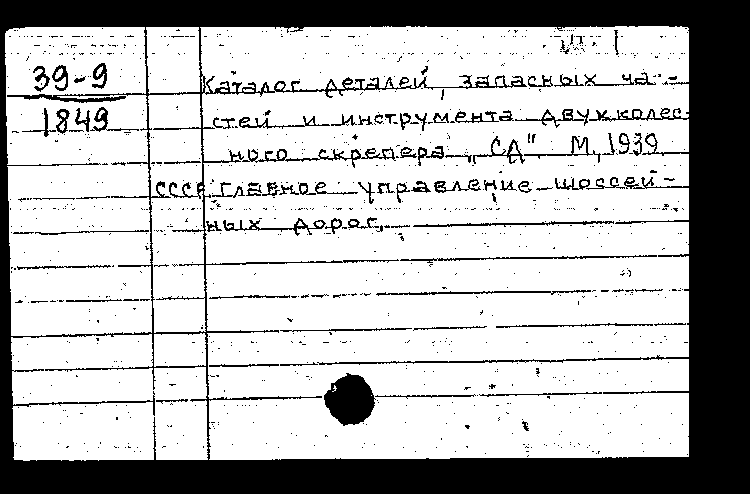 39-9
1849
Каталог деталей, запасных ча-
стей и инструмента двухколес-
ного скрепера „СД". М., 1939
СССР Главное управление шоссей-
ных дорог.